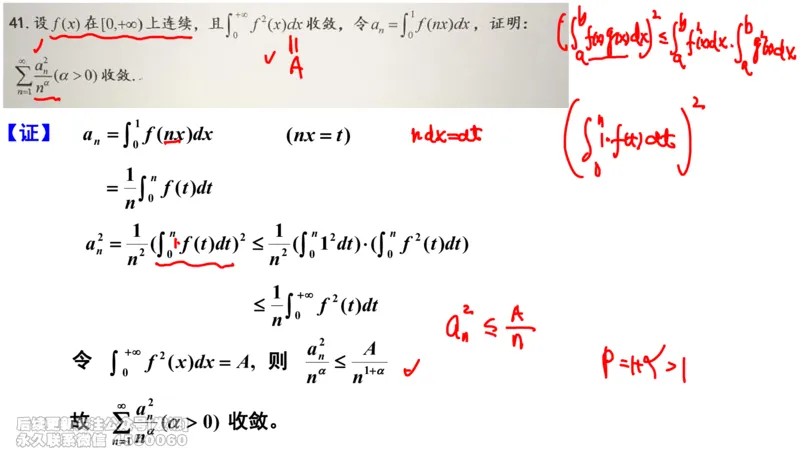 41. 设 f(x) 在 [0,+∞) 上连续，且∫₀^{+∞} f²(x)dx 收敛，令 aₙ = ∫₀¹ f(nx)dx，证明：
∑_{n=1}^{∞} aₙ²/n^α (α>0) 收敛.
A
(∫ₐᵇ f(x)g(x)dx)² ≤ ∫ₐᵇ f²(x)dx · ∫ₐᵇ g²(x)dx
【证】 aₙ = ∫₀¹ f(nx)dx (nx = t) ndx=dt
(∫₀ⁿ 1·f(t)dt)²
= 1/n ∫₀ⁿ f(t)dt
aₙ² = 1/n² (∫₀ⁿ 1·f(t)dt)² ≤ 1/n² (∫₀ⁿ 1²dt)·(∫₀ⁿ f²(t)dt)
≤ 1/n ∫₀^{+∞} f²(t)dt
aₙ² ≤ A/n
令 ∫₀^{+∞} f²(x)dx = A, 则 aₙ²/n^α ≤ A/n^{1+α}
P=1+α>1
故 ∑_{n=1}^{∞} aₙ²/n^α (α > 0) 收敛。